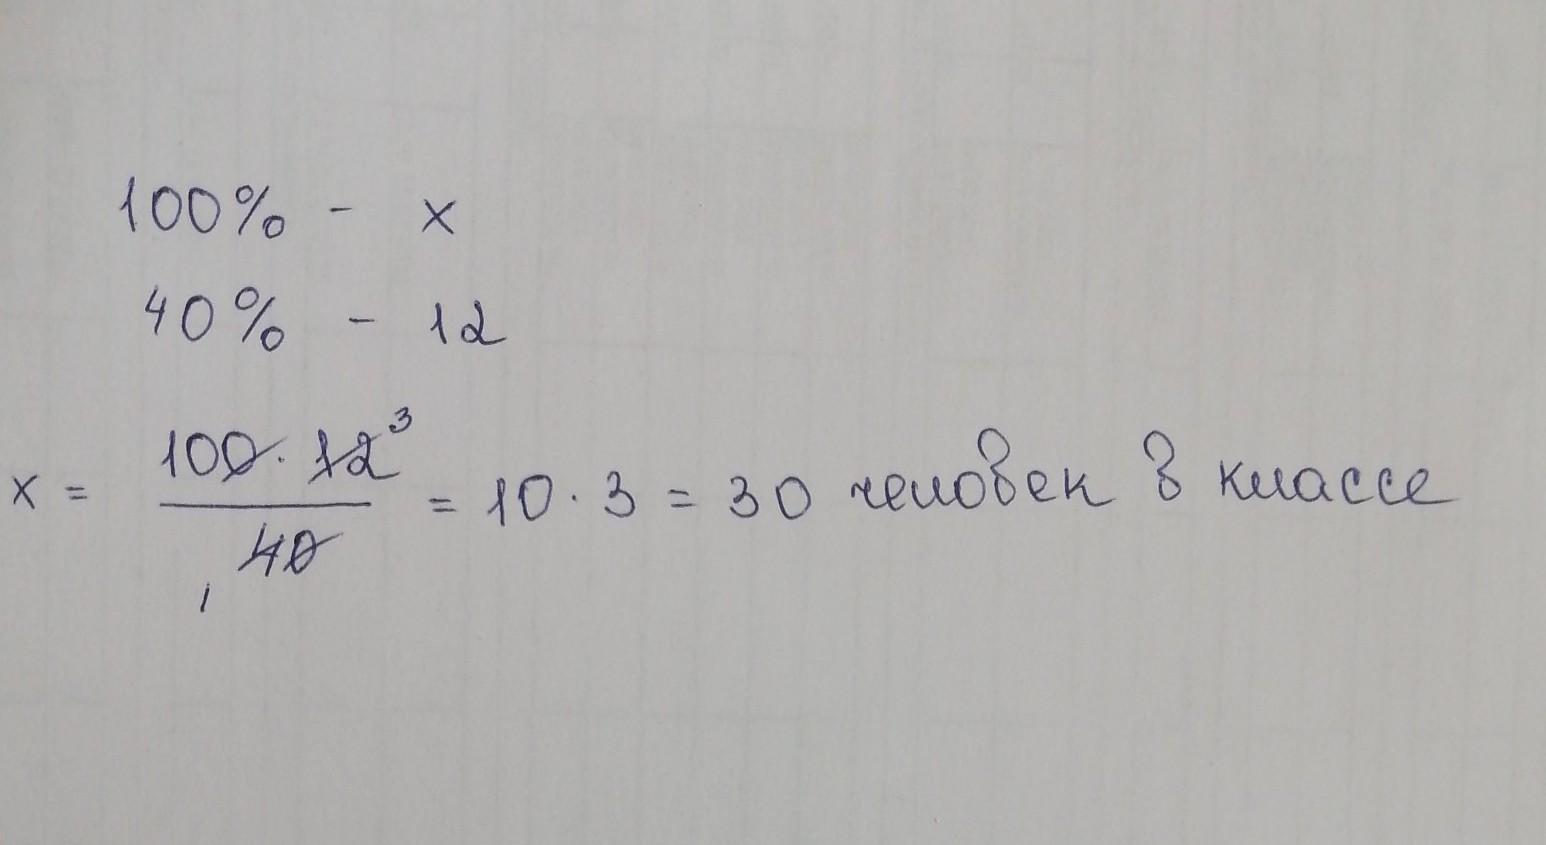 100% - x
40% - 12
x = 100 · 12 3 / 40 1 = 10 · 3 = 30 человек в классе